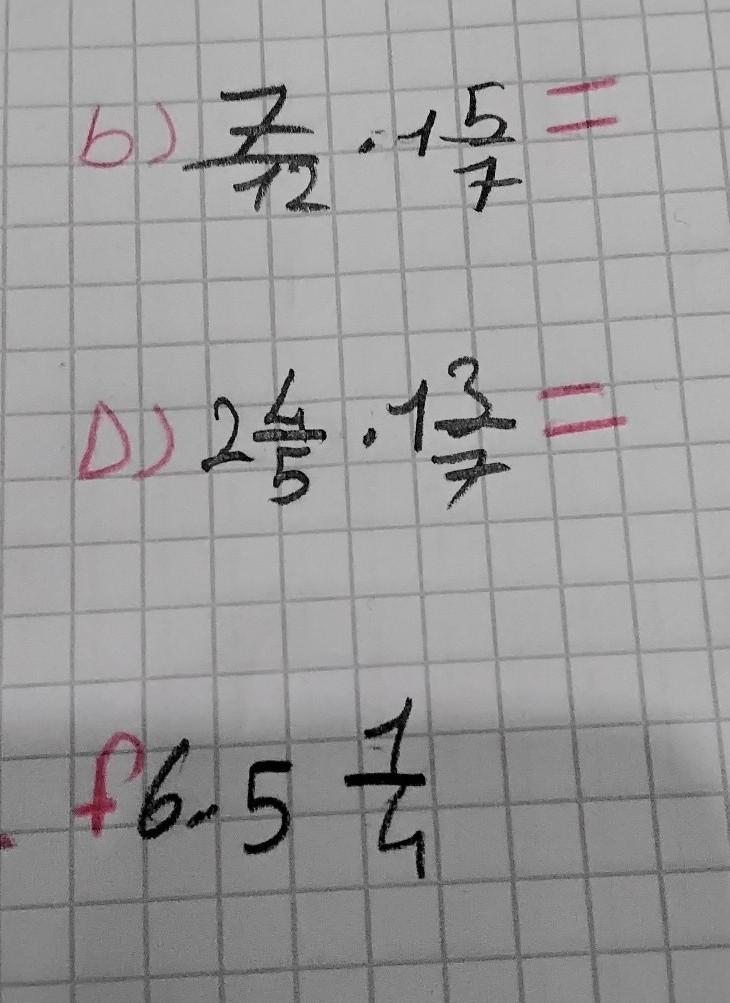 b) 7/12 · 1 5/7 =
D) 2 4/5 · 1 3/7 =
f 6 · 5 1/4